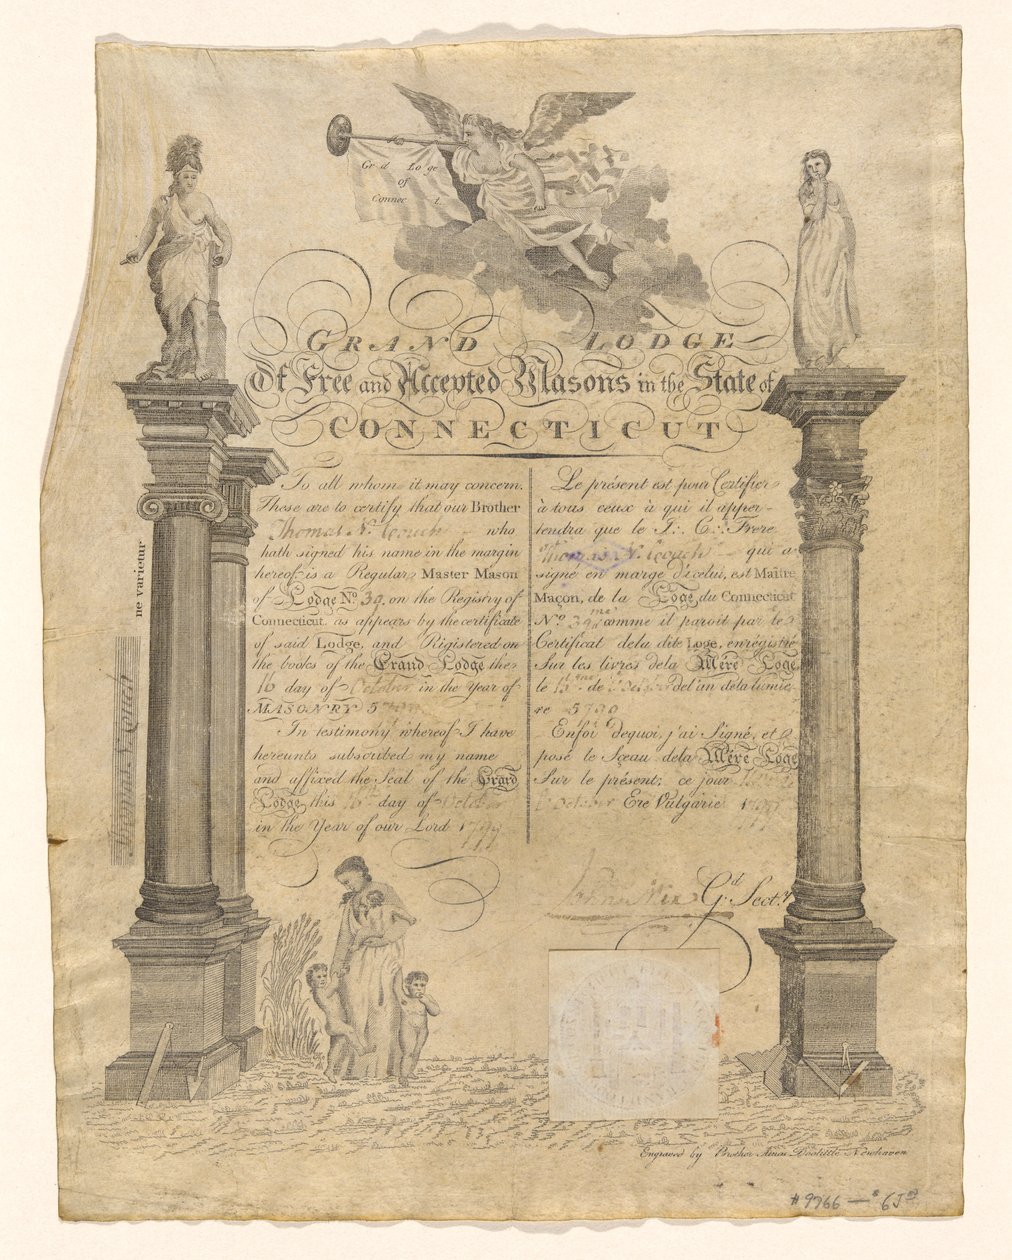 Gr d Lo ge
of
Connec t.
GRAND LODGE
Of Free and Accepted Masons in the State of
CONNECTICUT
To all whom it may concern.
These are to certify that our Brother
Thomas N. Couch who
hath signed his name in the margin
hereof is a Regular Master Mason
of Lodge No. 39, on the Registry of
Connecticut, as appears by the certificate
of said Lodge, and Rigistered on
the books of the Grand Lodge the
16 day of October in the Year of
MASONRY 5
In testimony whereof I have
hereunto subscribed my name
and affixed the Seal of the Grand
Lodge this 16th day of October
in the Year of our Lord 1799
Le présent est pour Certifier
à tous ceux à qui il apper-
tendra que le T∴ C∴ Frere
Thomas N. Couch qui a
signé en marge d'icelui, est Maître
Maçon, de la Loge du Connecticut
No. 39me comme il paroit par le
Certificat de la dite Loge, enrégistré
Sur les livres de la Mére Loge
le de October de l'an de la lumie-
re 5
En foi de quoi, j'ai Signé, et a
posé le Sçeau de la Mére Loge
Sur le présent; ce jour
October Ere Vulgarie 1799
John Mix Gd. Sect.y
ne varietur
Engraved by Brother Amos Doolittle Newhaven
#9766